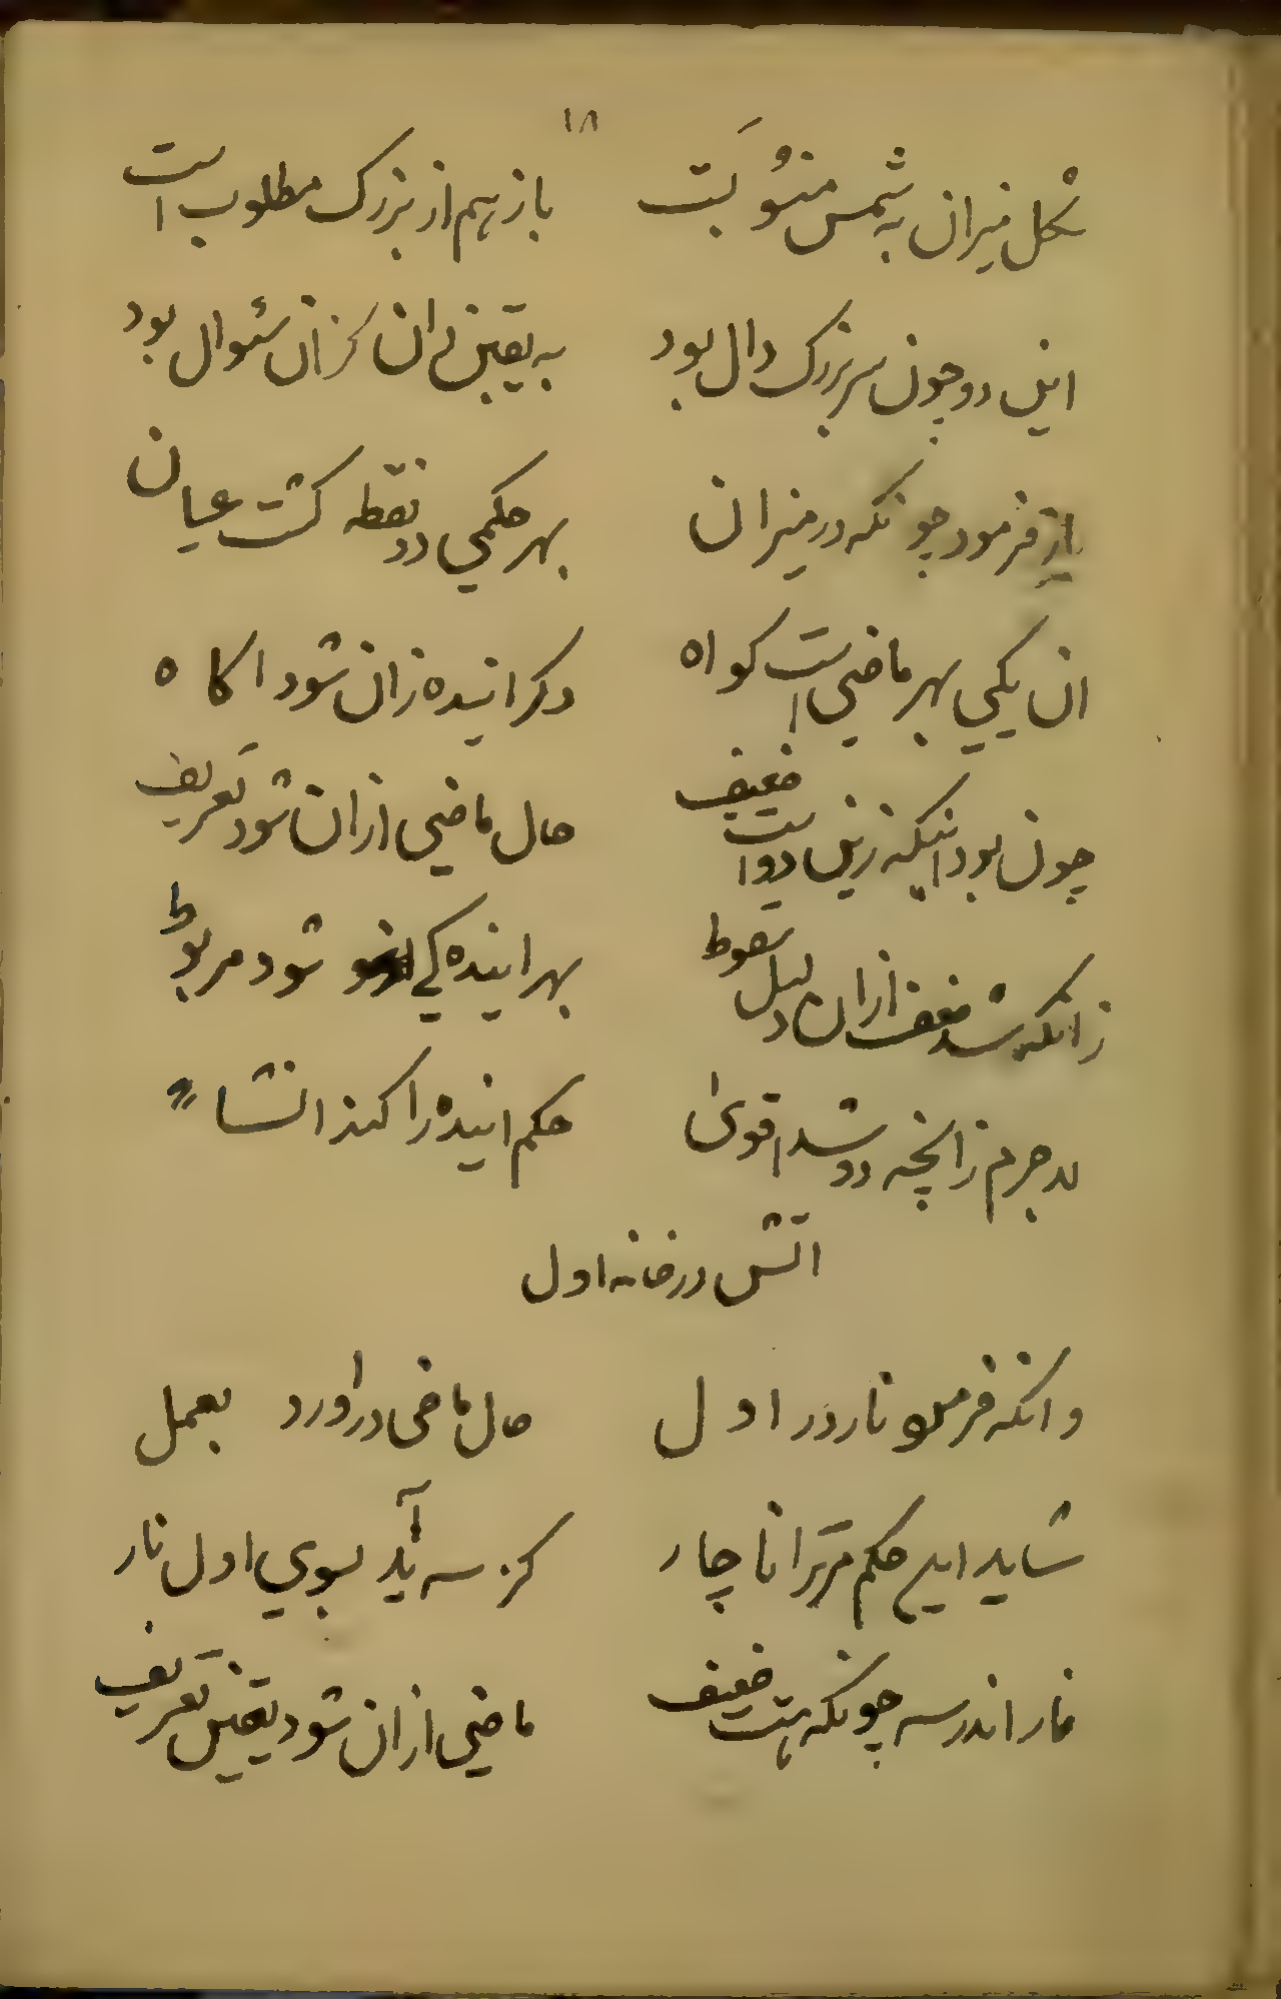 ۱۸
شکل میزان به شمس منسوبست بازهم از بزرک مطلوب است
این دو چون بر بزرک دال بود به یقین دان کزان سئوال بود
باز فرمود چونکه در میزان بهر حکمی دو نقطه کشت عیان
ان یکی بهر ماضی است کواه دکر اینده زان شود اکاه
چون بود انیکه زین دو است ضعیف حال ماضی ازان شود تعریف
زانکه شد ضعف ازان دلیل سقوط بهر اینده کی شود مربوط
لاجرم زانچه دو شد اقوی حکم اینده را کند انشاء
اتش در خانه اول
وانکه فرمود نار در اول حال ماضی دراورد بعمل
شاید این حکم مر ترا ناچار کز سه آید بسوی اول نار
نار اندر سه چونکه هست ضعیف ماضی ازان شود یقین تعریف